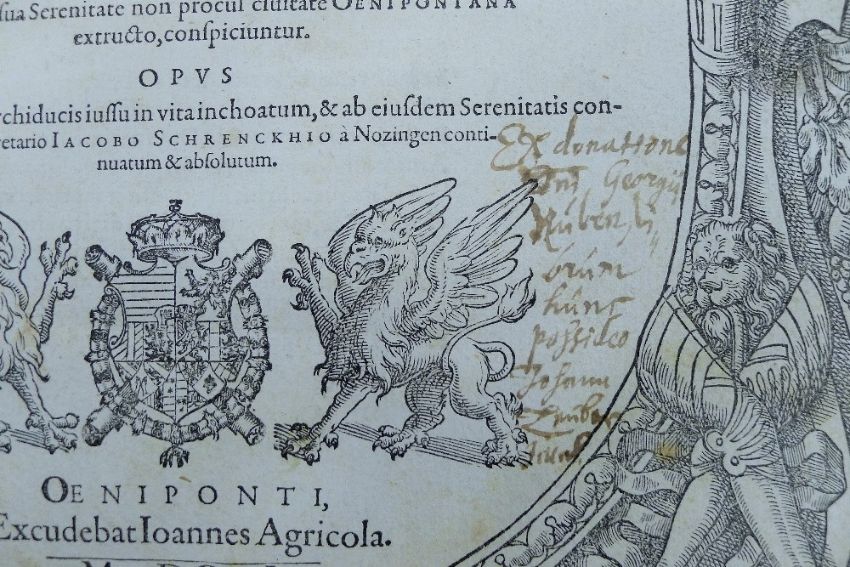 sua Serenitate non procul ciuitate OENIPONTANA
extructo, conspiciuntur.
OPVS
rchiducis iussu in vita inchoatum, & ab eiusdem Serenitatis con-
retario IACOBO SCHRENCKHIO à Nozingen conti-
nuatum & absolutum.
Ex donatione
Dni Georgij
orum
hunc
possideo
Johann
OENIPONTI,
Excudebat Ioannes Agricola.